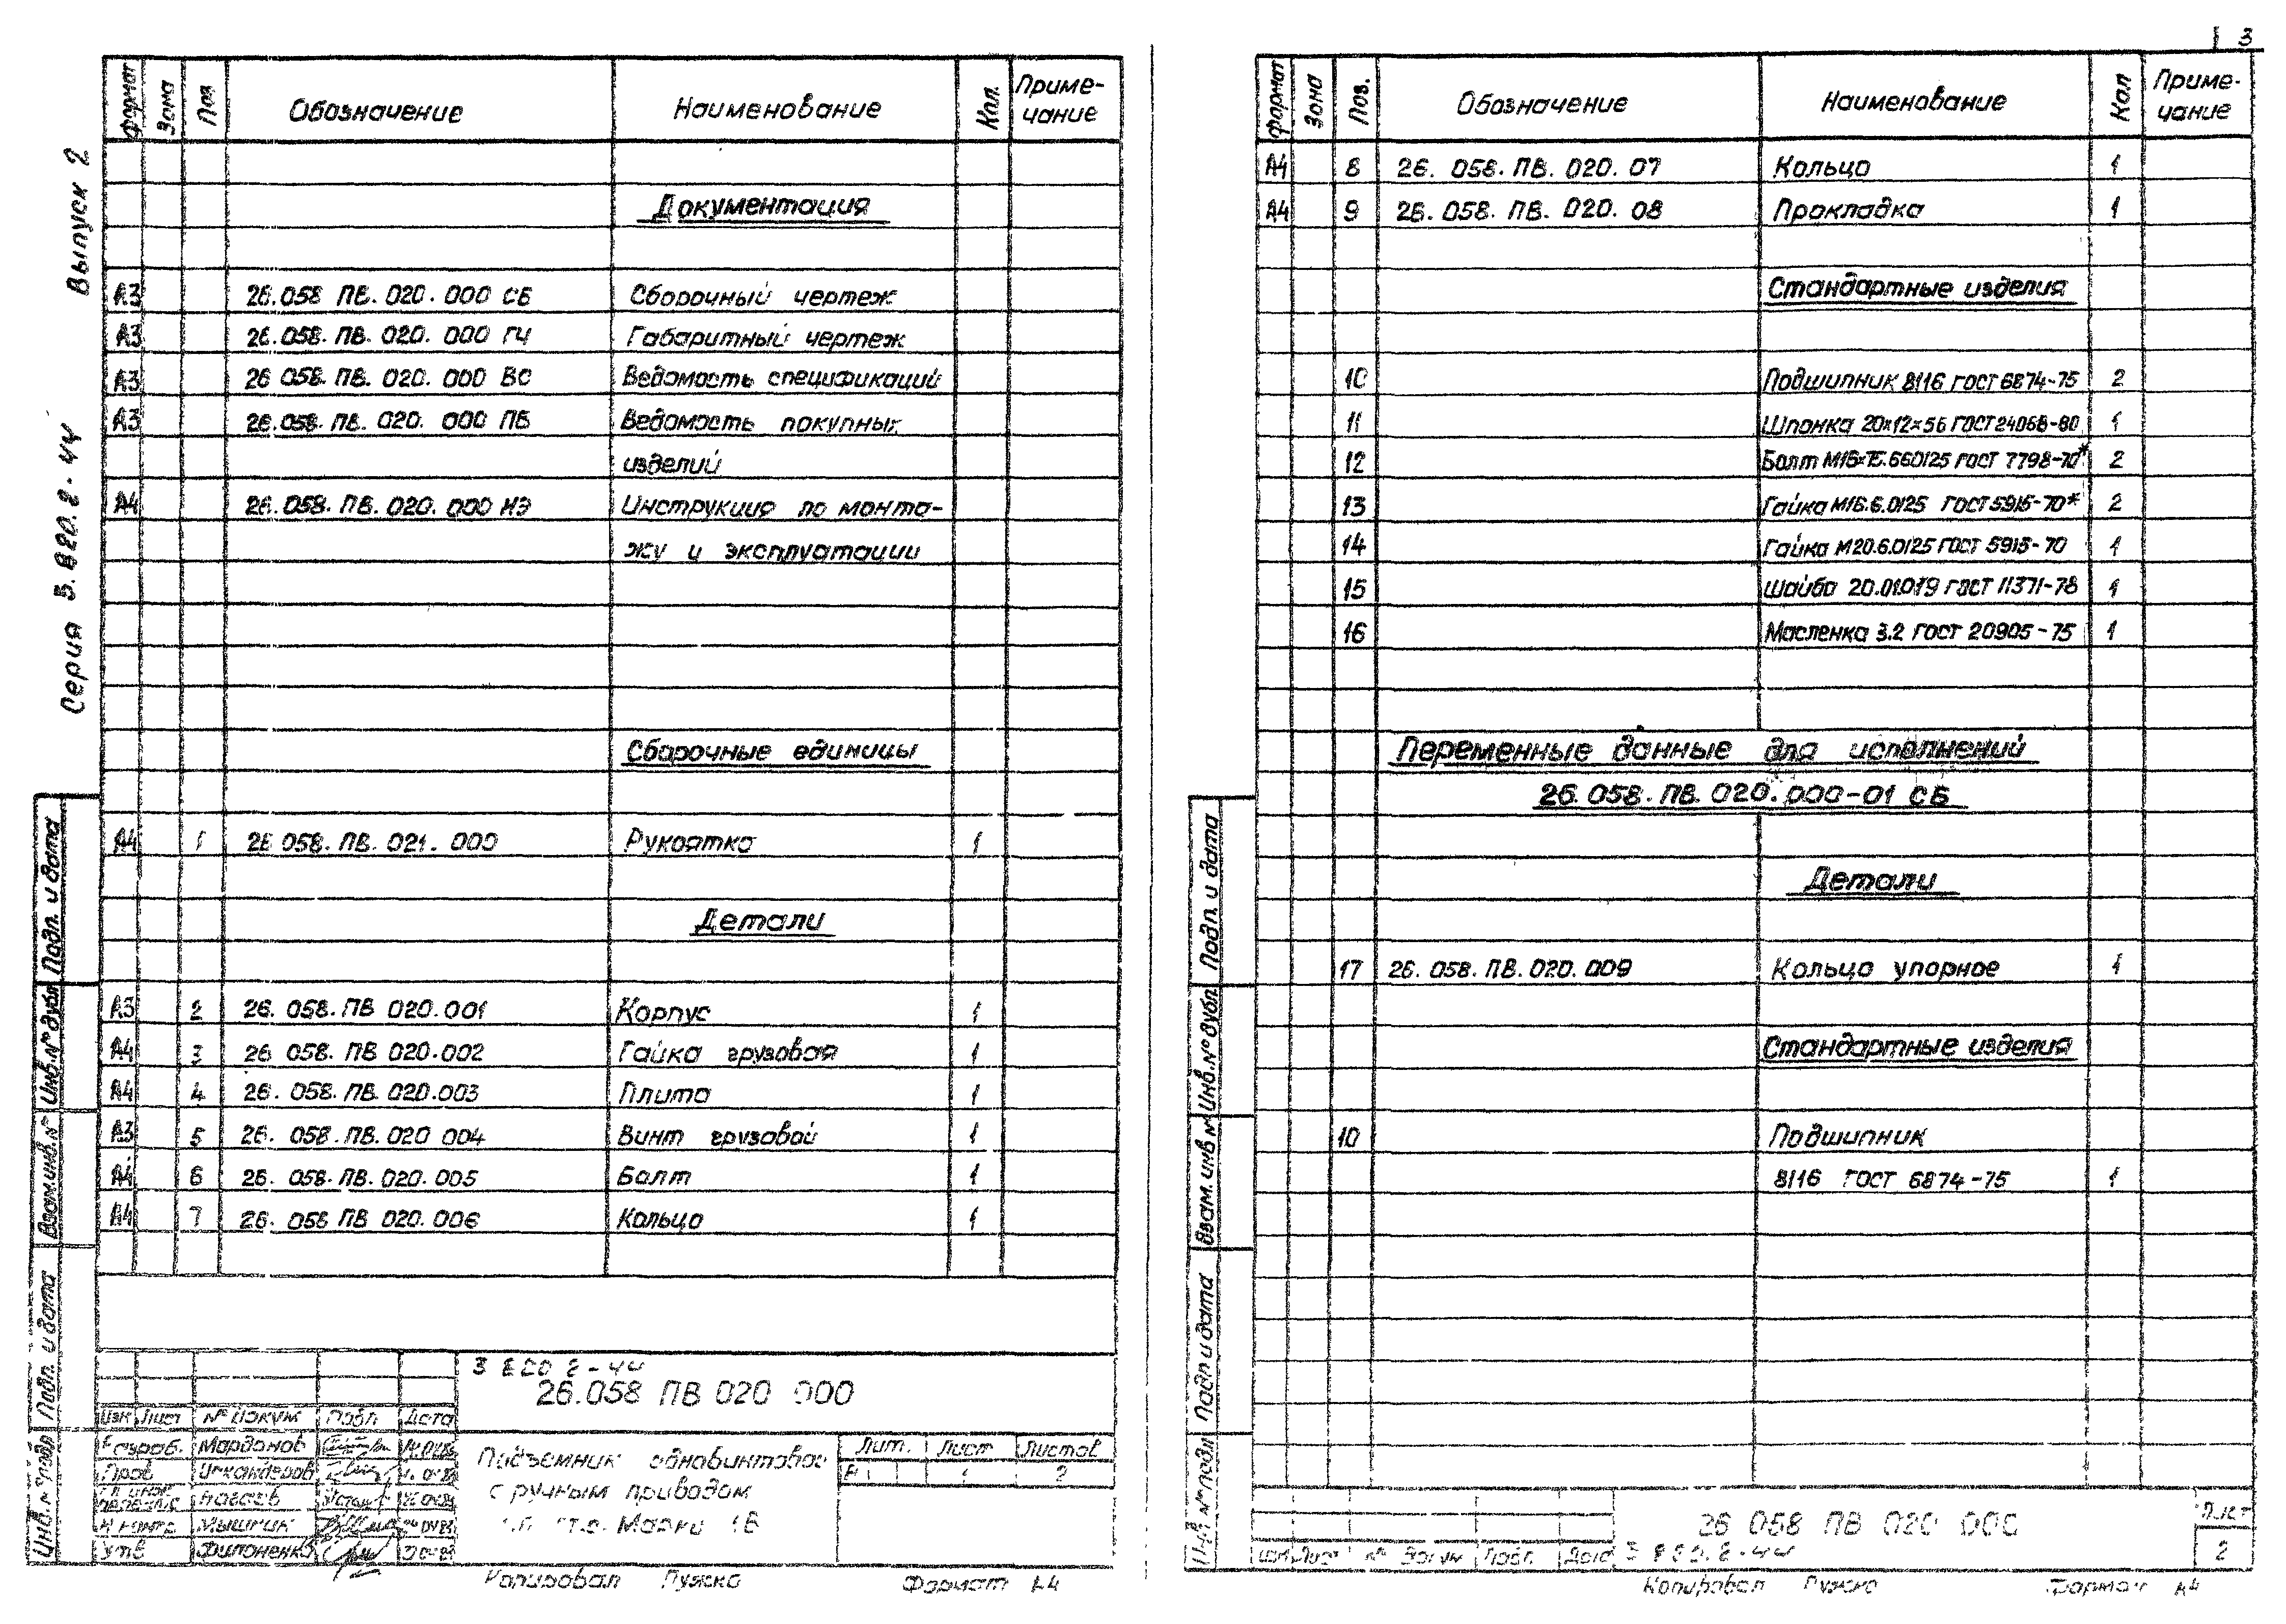 3
Серия 3.820.2-44 Выпуск 2
Формат Зона Поз Обозначение Наименование Кол. Приме-
чание
Документация
А3 26.058 ПВ.020.000 СБ Сборочный чертеж
А3 26.058.ПВ.020.000 ГЧ Габаритный чертеж
А3 26 058.ПВ.020.000 ВС Ведомость спецификаций
А3 26.058.ПВ.020.000 ПВ Ведомость покупных
изделий
А4 26.058.ПВ.020.000 ИЭ Инструкция по монта-
жу и эксплуатации
Сборочные единицы
А4 1 26 058.ПВ.021.000 Рукоятка 1
Детали
А3 2 26.058.ПВ 020.001 Корпус 1
А4 3 26 058.ПВ 020.002 Гайка грузовая 1
А4 4 26.058.ПВ.020.003 Плита 1
А3 5 26.058.ПВ.020 004 Винт грузовой 1
А4 6 26.058.ПВ.020.005 Болт 1
А4 7 26.058 ПВ 020.006 Кольцо 1
Подп. и дата
Инв.№ дубл
Взам.инв.№
Подп. и дата
Инв.№ подл
3 820 2-44
26.058 ПВ 020 000
Изм Лист № докум Подп Дата
Разраб. Марданов
Пров Искандеров
Н контр Мышкин
Утв Филоненко
Подъемник одновинтовой
с ручным приводом
Марки 1В
Лит. Лист Листов
1 2
Копировал Пужко Формат А4
Формат Зона Поз. Обозначение Наименование Кол Приме-
чание
А4 8 26.058.ПВ.020.07 Кольцо 1
А4 9 26.058.ПВ.020.08 Прокладка 1
Стандартные изделия
10 Подшипник 8116 ГОСТ 6874-75 2
11 Шпонка 20×12×56 ГОСТ 24068-80 1
12 Болт М16×75.660125 ГОСТ 7798-70* 2
13 Гайка М16.6.0125 ГОСТ 5915-70* 2
14 Гайка М20.6.0125 ГОСТ 5915-70 1
15 Шайба 20.01.019 ГОСТ 11371-78 1
16 Масленка 3.2 ГОСТ 20905-75 1
Переменные данные для исполнений
26.058.ПВ.020.000-01 СБ
Детали
17 26.058.ПВ.020.009 Кольцо упорное 1
Стандартные изделия
10 Подшипник
8116 ГОСТ 6874-75 1
Подп. и дата
Инв.№ дубл
Взам.инв №
Подп и дата
Инв №подл
26 058 ПВ 020 000
Лист
2
Изм Лист № Докум Подп. Дата 3 820.2-44
Копировал Пужко Формат А4